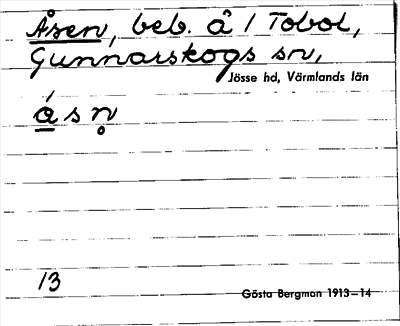 Åsen, beb. å 1 Tobol,
Gunnarskogs sn,
Jösse hd, Värmlands län
ásn̥
13
Gösta Bergman 1913–14